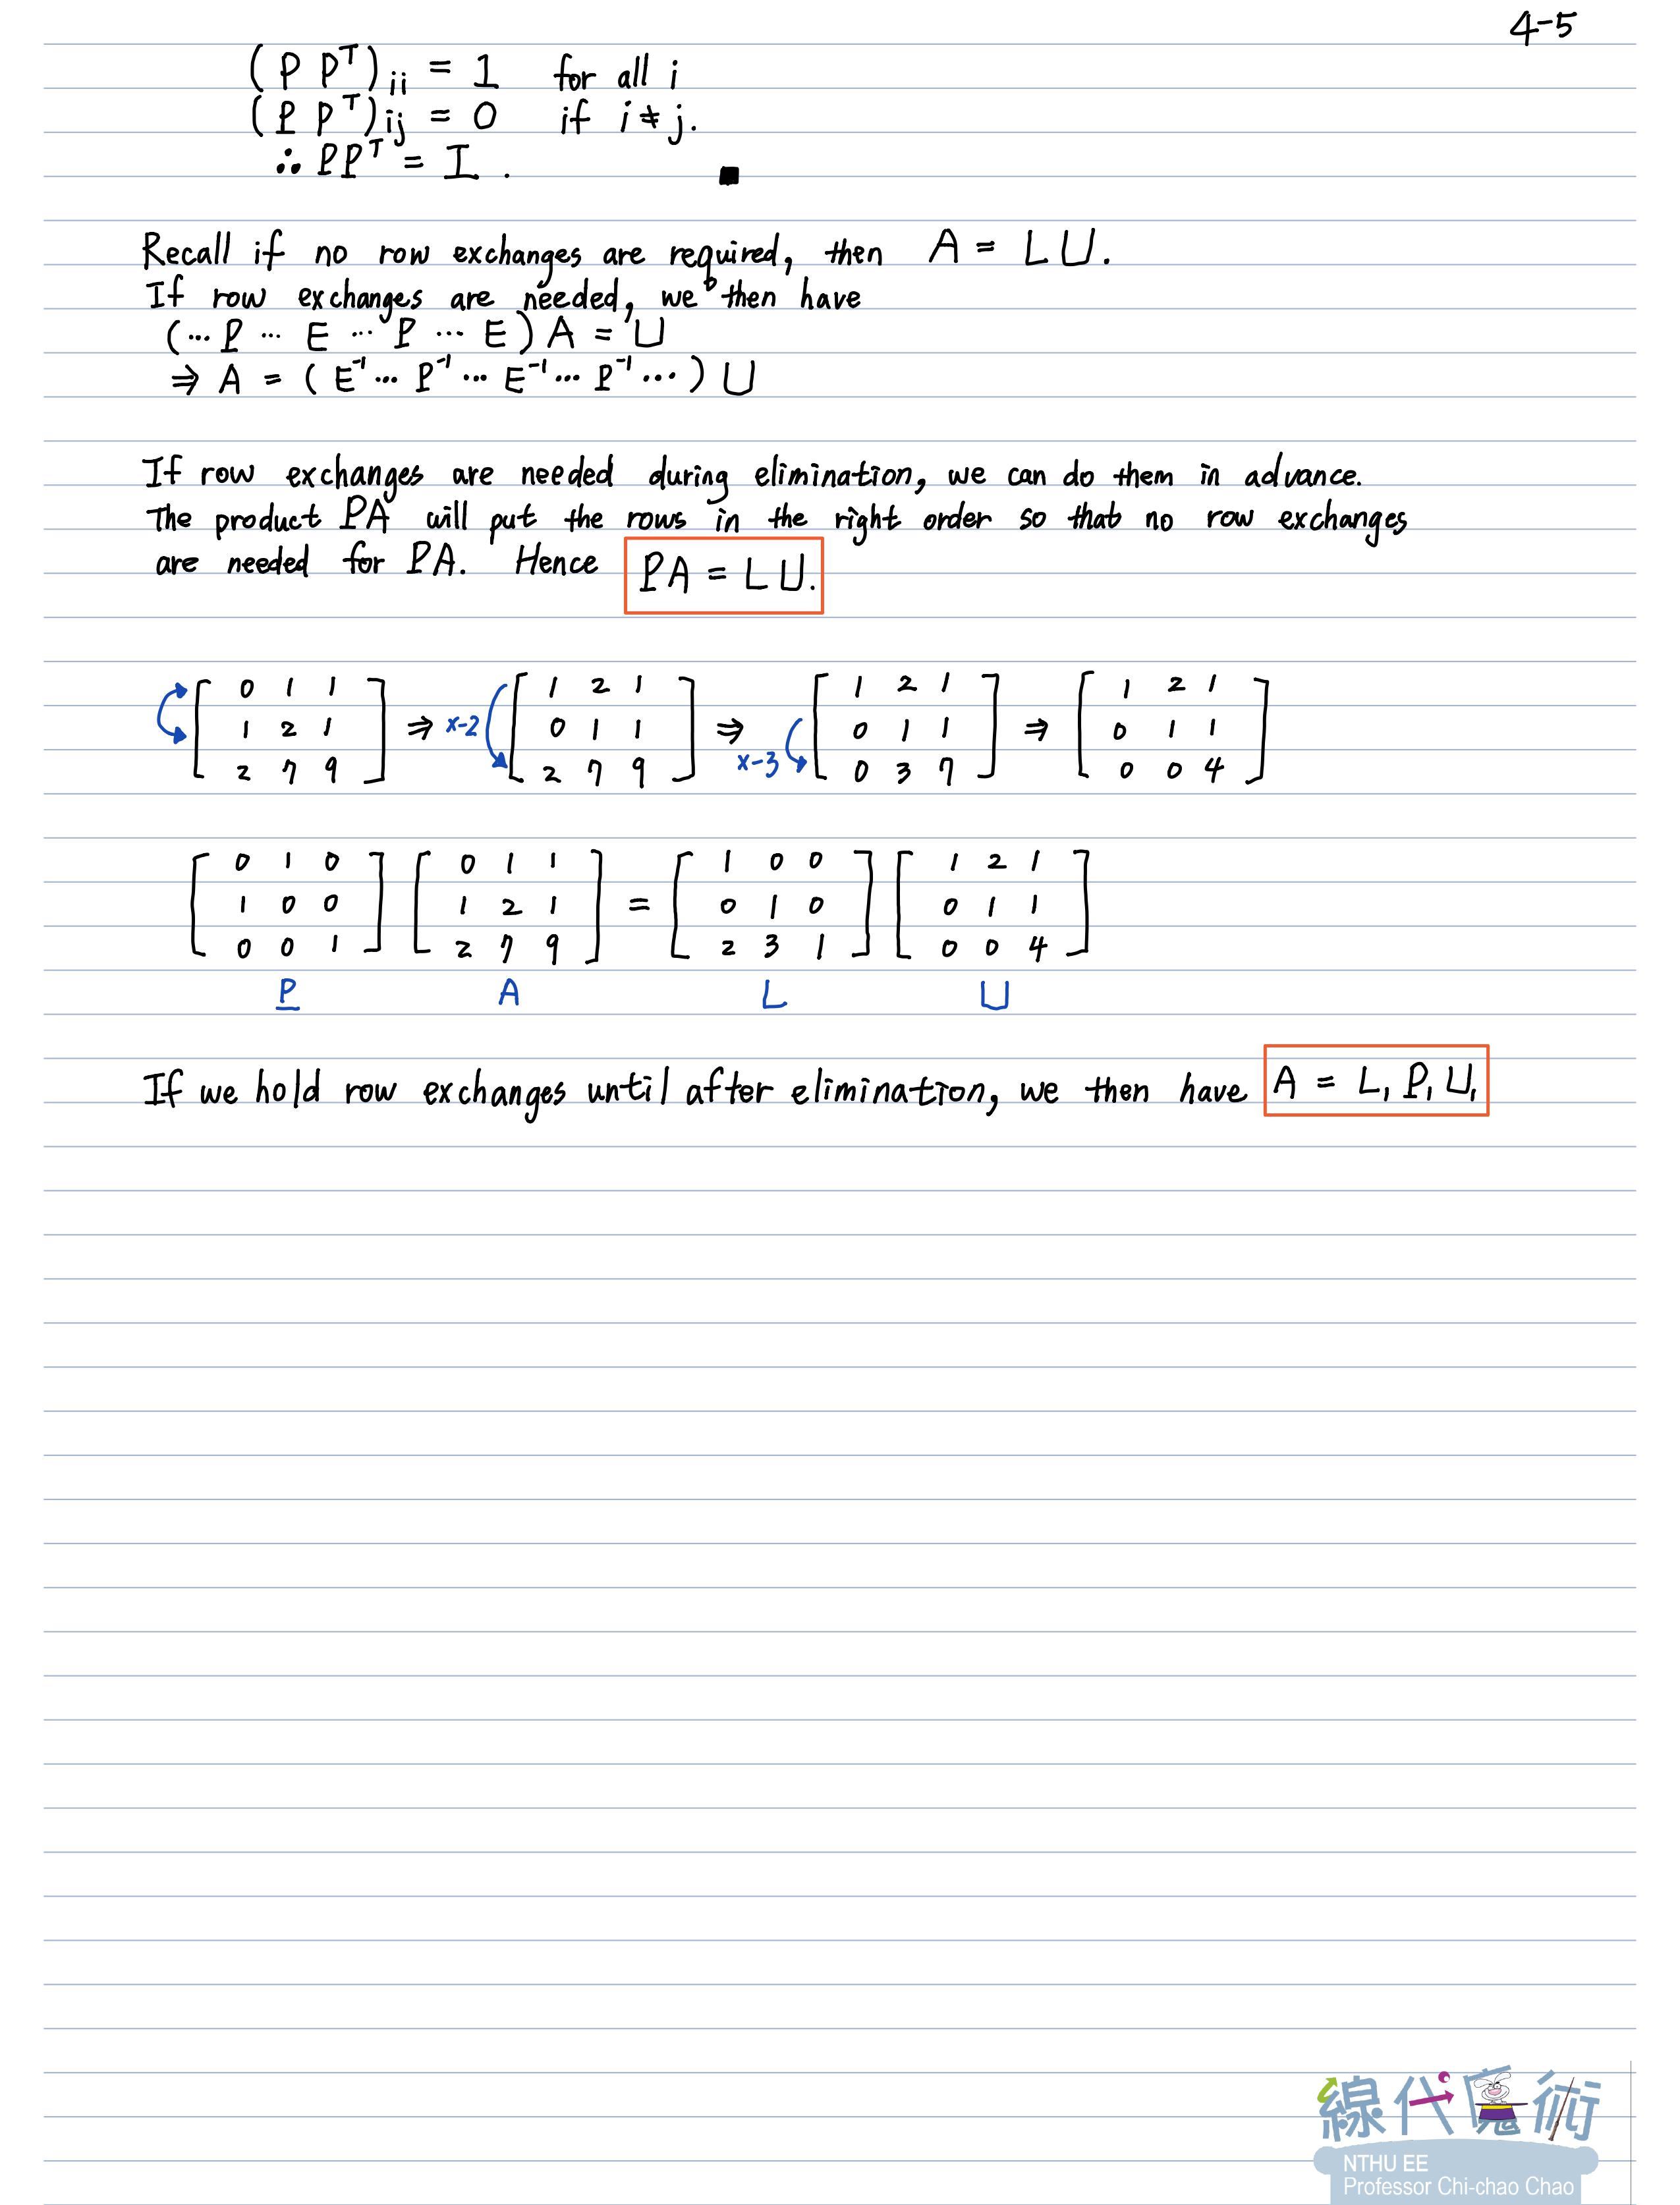 4-5
(P Pᵀ)ᵢᵢ = 1 for all i
(P Pᵀ)ᵢⱼ = 0 if i ≠ j.
∴ PPᵀ = I. ■
Recall if no row exchanges are required, then A = LU.
If row exchanges are needed, we then have
(… P … E … P … E) A = U
⇒ A = (E⁻¹ … P⁻¹ … E⁻¹ … P⁻¹ …) U
If row exchanges are needed during elimination, we can do them in advance.
The product PA will put the rows in the right order so that no row exchanges
are needed for PA. Hence PA = LU.
[0 1 1] [1 2 1] [1 2 1] [1 2 1]
[1 2 1] ⇒ x-2 [0 1 1] ⇒ [0 1 1] ⇒ [0 1 1]
[2 7 9] [2 7 9] x-3 [0 3 7] [0 0 4]
[0 1 0] [0 1 1] [1 0 0] [1 2 1]
[1 0 0] [1 2 1] = [0 1 0] [0 1 1]
[0 0 1] [2 7 9] [2 3 1] [0 0 4]
P A L U
If we hold row exchanges until after elimination, we then have A = L₁ P₁ U₁
線代魔術
NTHU EE
Professor Chi-chao Chao